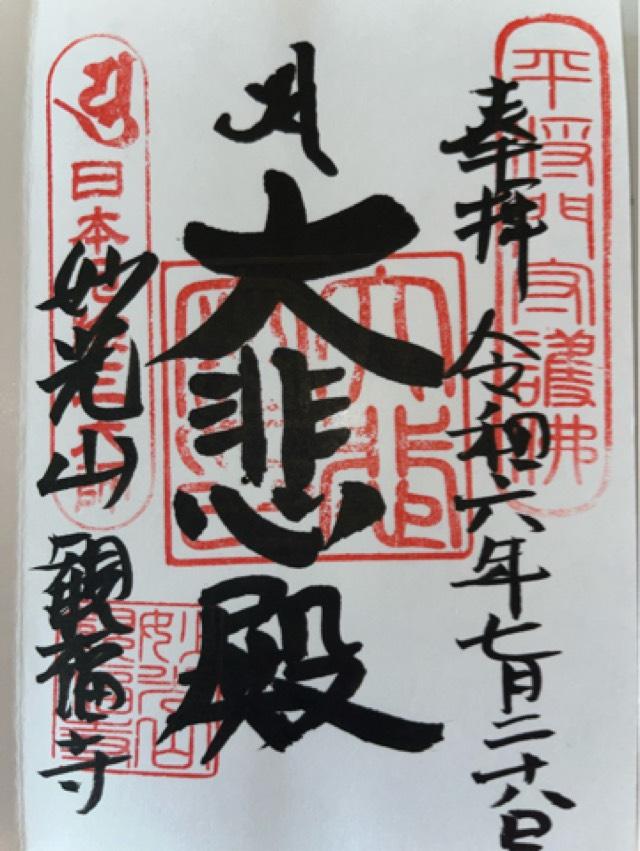 平将門守護佛
奉拝 令和六年七月二十八日
大悲殿
日本
妙光山 観福寺
妙光山